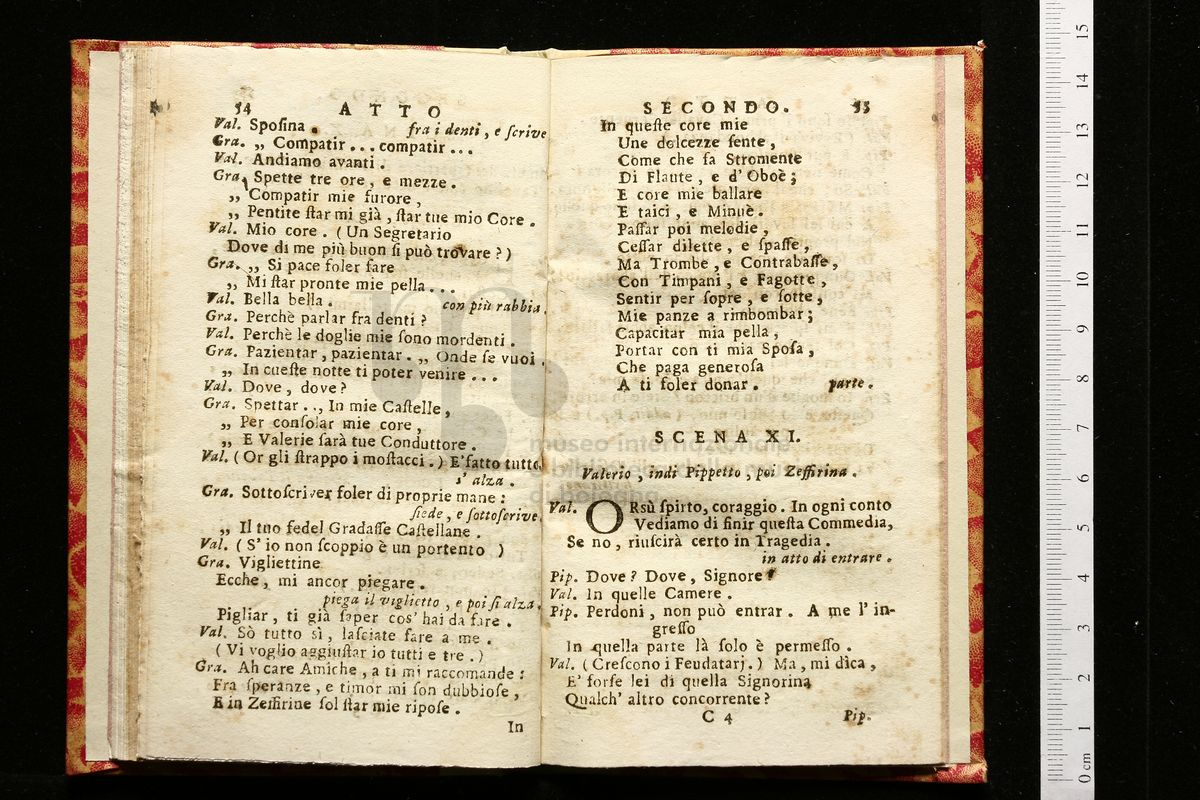 54 ATTO
Val. Spoſina. fra i denti, e ſcrive
Gra. „ Compatir... compatir...
Val. Andiamo avanti.
Gra. Spette tre ore, e mezze.
„ Compatir mie furore,
„ Pentite ſtar mi già, ſtar tue mio Core.
Val. Mio core. (Un Segretario
Dove di me più buon ſi può trovare?)
Gra. „ Si pace foler fare
„ Mi ſtar pronte mie pella...
Val. Bella bella. con più rabbia.
Gra. Perchè parlar fra denti?
Val. Perchè le doglie mie ſono mordenti.
Gra. Pazientar, pazientar. „ Onde ſe vuoi
„ In cueſte notte ti poter venire...
Val. Dove, dove?
Gra. Spettar.., In mie Caſtelle,
„ Per conſolar mie core,
„ E Valerie ſarà tue Conduttore.
Val. (Or gli ſtrappo i moſtacci.) E' fatto tutto.
s' alza.
Gra. Sottoſcriver foler di proprie mane:
ſiede, e ſottoſcrive.
„ Il tuo fedel Gradaſſe Caſtellane.
Val. (S' io non ſcoppio è un portento)
Gra. Vigliettine
Ecche, mi ancor piegare.
piega il viglietto, e poi ſi alza.
Pigliar, ti già ſaper cos' hai da fare.
Val. Sò tutto sì, laſciate fare a me.
(Vi voglio aggiuſtar io tutti e tre.)
Gra. Ah care Amiche, a ti mi raccomande:
Fra ſperanze, e timor mi ſon dubbioſe,
E in Zeffirine ſol ſtar mie ripoſe.
In
SECONDO. 55
In queſte core mie
Une dolcezze ſente,
Come che fa Stromente
Di Flaute, e d' Oboè;
E core mie ballare
E taici, e Minuè.
Paſſar poi melodie,
Ceſſar dilette, e ſpaſſe,
Ma Trombe, e Contrabaſſe,
Con Timpani, e Fagotte,
Sentir per ſopre, e ſotte,
Mie panze a rimbombar;
Capacitar mia pella,
Portar con ti mia Spoſa,
Che paga generoſa
A ti foler donar. parte.
SCENA XI.
Valerio, indi Pippetto, poi Zeffirina.
Val. ORsù ſpirto, coraggio. In ogni conto
Vediamo di finir queſta Commedia,
Se no, riuſcirà certo in Tragedia.
in atto di entrare.
Pip. Dove? Dove, Signore?
Val. In quelle Camere.
Pip. Perdoni, non può entrar. A me l' in-
greſſo
In quella parte là ſolo è permeſſo.
Val. (Creſcono i Feudatarj.) Ma, mi dica,
E' forſe lei di quella Signorina
Qualch' altro concorrente?
C 4 Pip.
museo internazionale
di bologna
0 cm 1 2 3 4 5 6 7 8 9 10 11 12 13 14 15